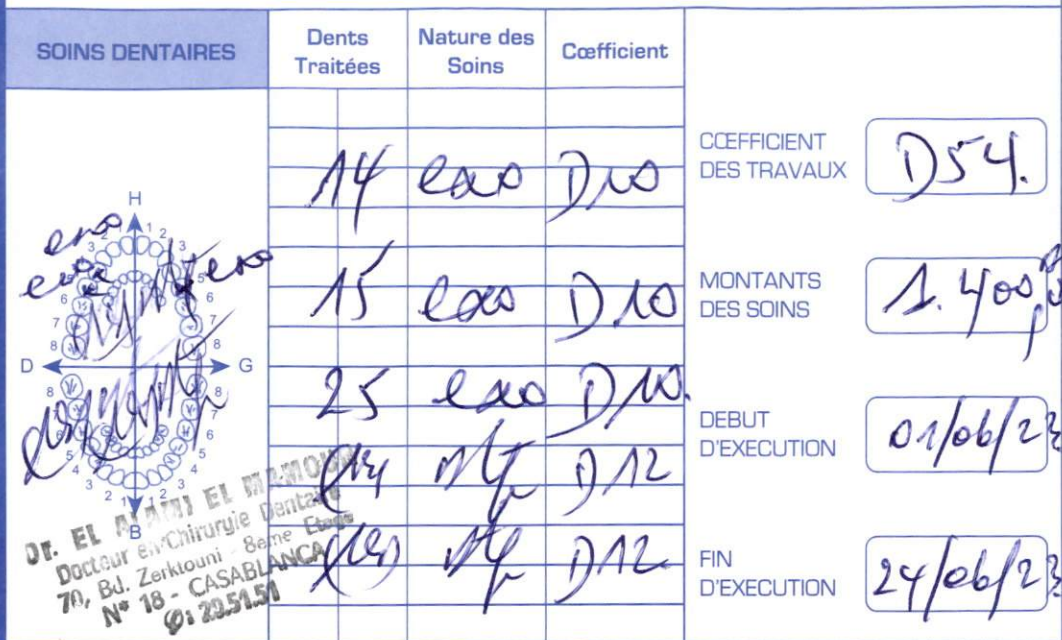 SOINS DENTAIRES
Dents Traitées
Nature des Soins
Cœfficient
14 exo D10
15 exo D10
25 exo D10.
D12
D12
CŒFFICIENT DES TRAVAUX
D54.
MONTANTS DES SOINS
1.400,
DEBUT D'EXECUTION
01/06/23
FIN D'EXECUTION
24/06/23
H
exo
exo
exo
D
G
B
Dr. EL ALAMI EL MAMOUN
Docteur en Chirurgie Dentaire
70, Bd. Zerktouni - 8ème Etage
N° 18 - CASABLANCA
: 20.51.51